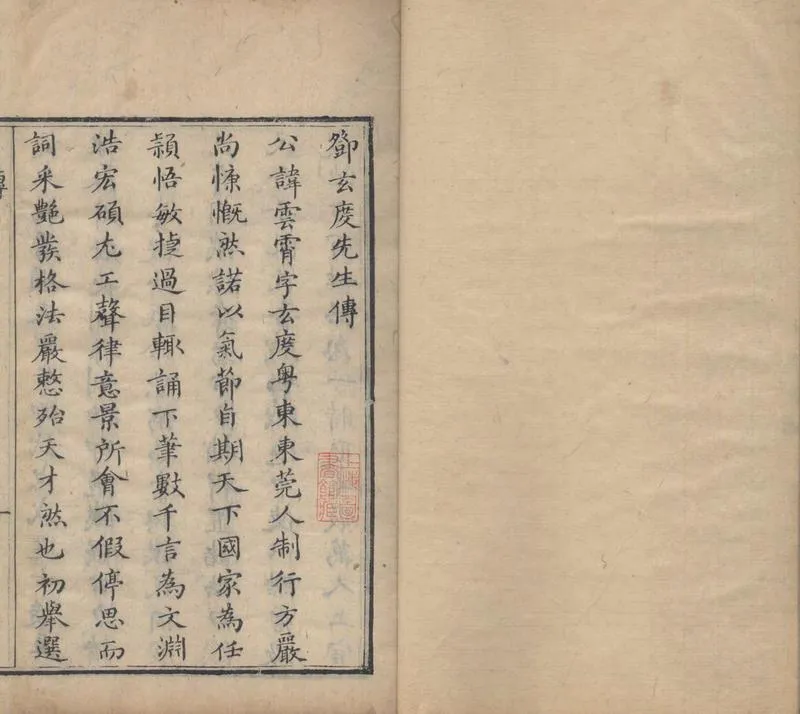 鄧玄度先生傳
公諱雲霄字玄度粵東東莞人制行方嚴
尚慷慨然諾以氣節自期天下國家為任
穎悟敏捷過目輒誦下筆數千言為文淵
浩宏碩尤工聲律意景所會不假停思而
詞采艷發格法嚴整殆天才然也初舉選
傳
一
上海圖書館藏